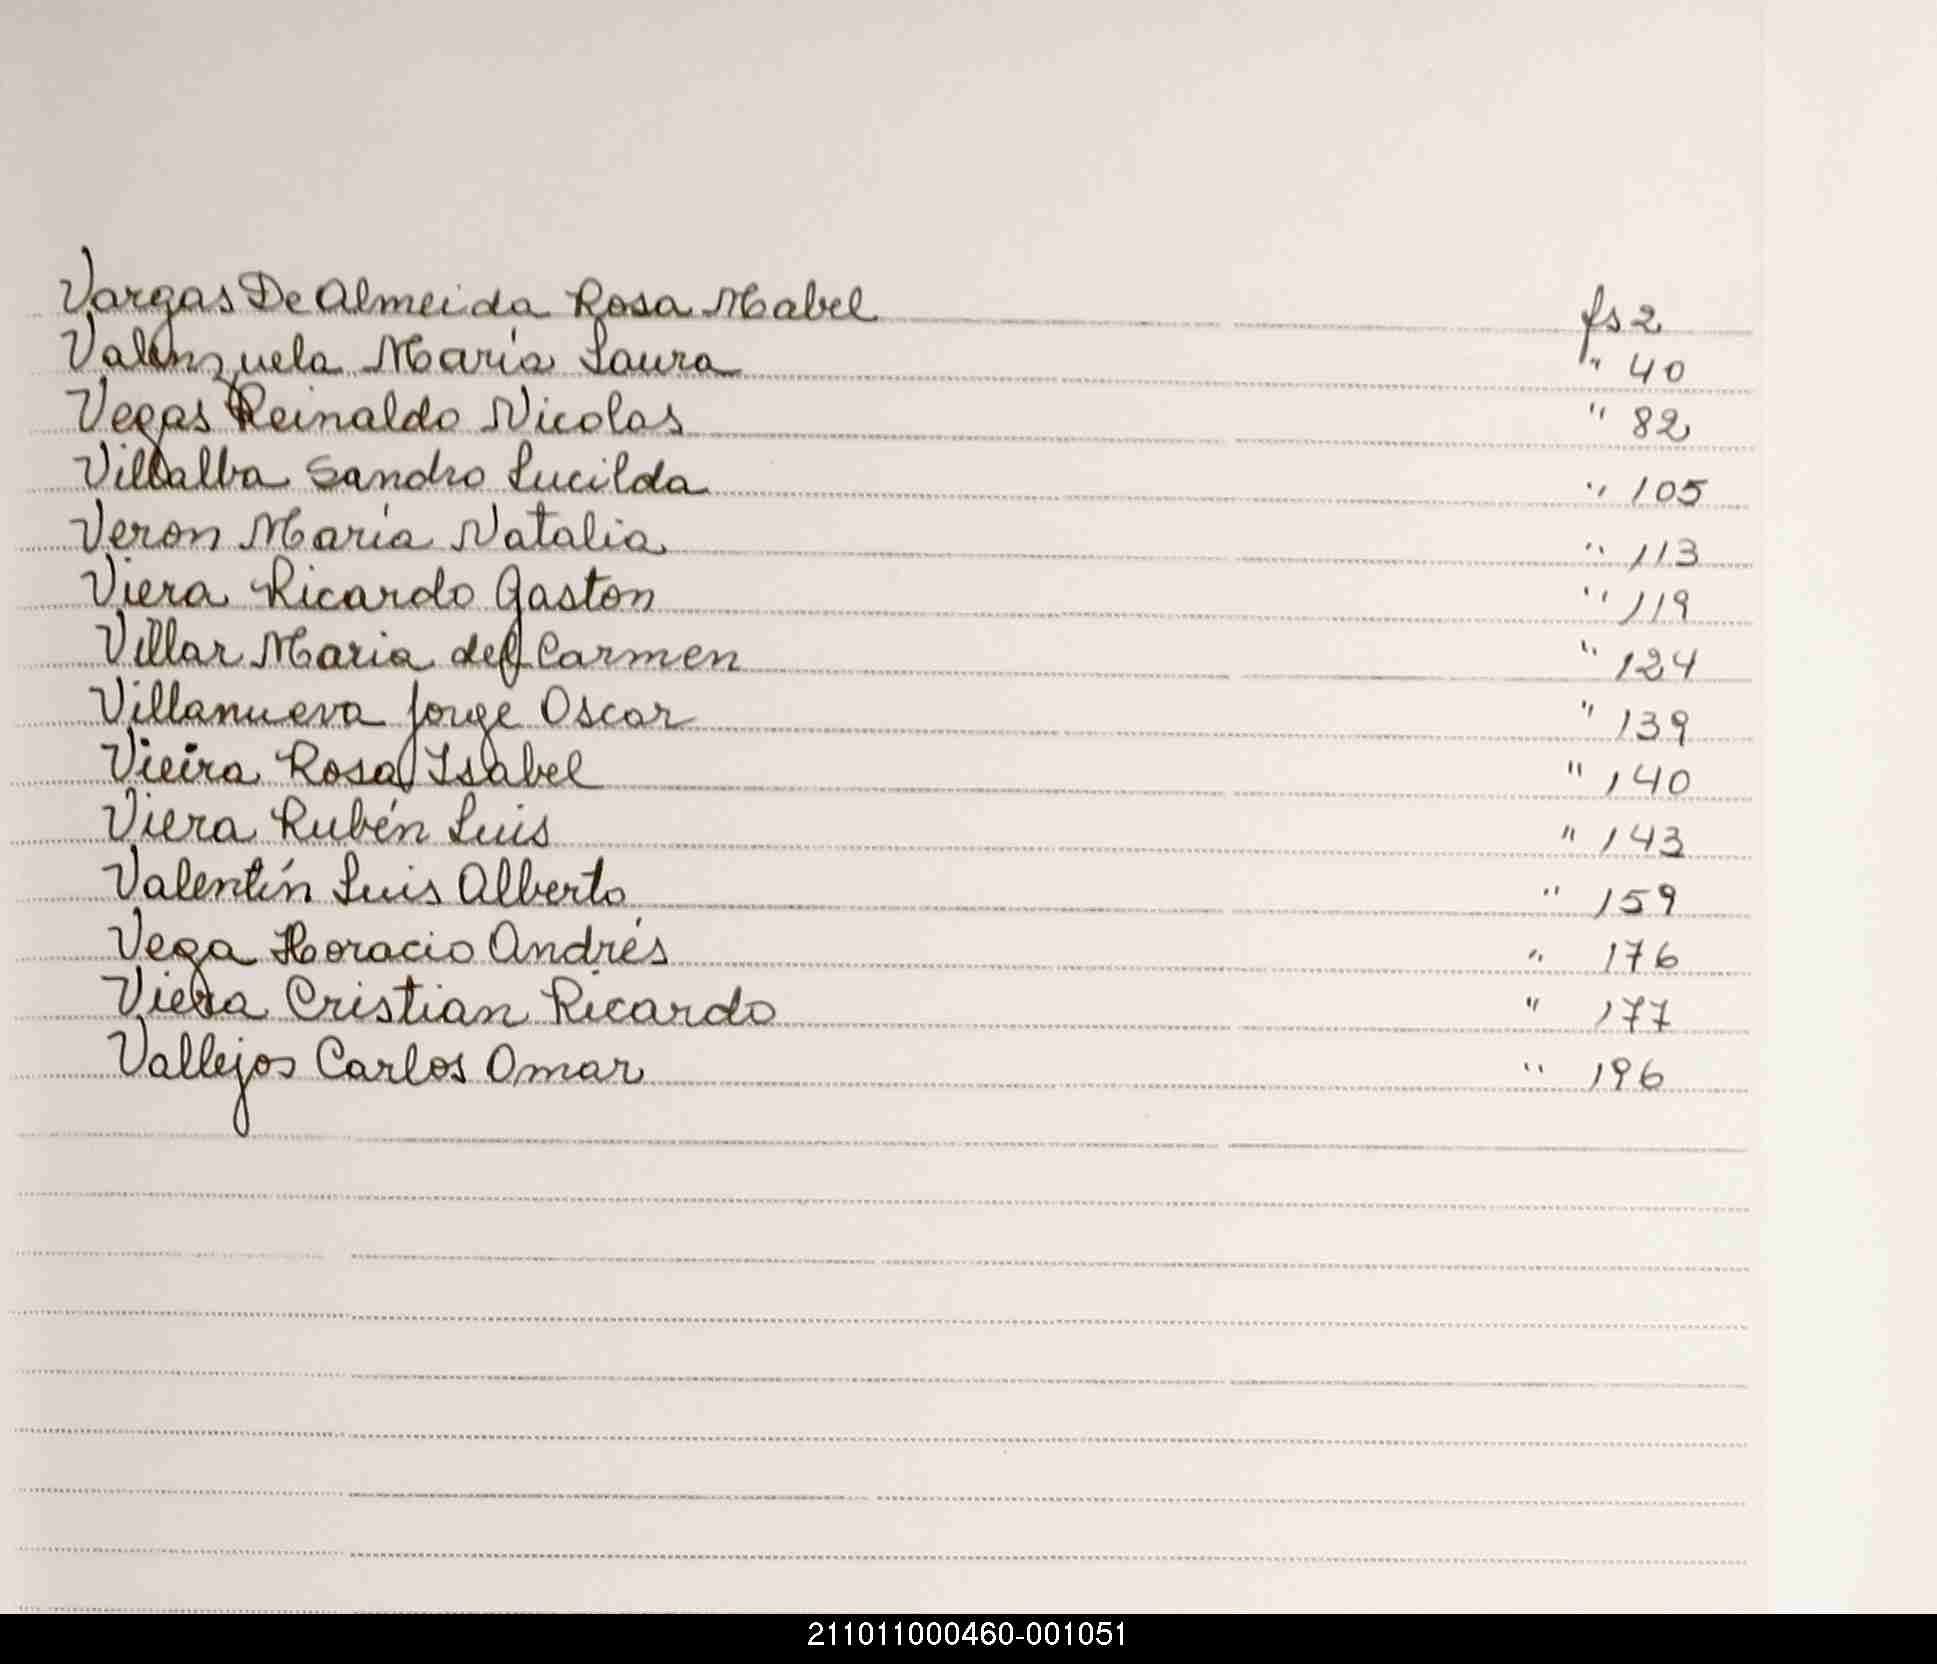 Vargas De Almeida Rosa Mabel fs 2
Valenzuela María Laura " 40
Vegas Reinaldo Nicolas " 82
Villalba Sandro Lucilda " 105
Veron María Natalia " 113
Viera Ricardo Gaston " 119
Villar Maria del Carmen " 124
Villanueva Jorge Oscar " 139
Vieira Rosa Isabel " 140
Viera Rubén Luis " 143
Valentín Luis Alberto " 159
Vega Horacio Andrés " 176
Viera Cristian Ricardo " 177
Vallejos Carlos Omar " 196
211011000460-001051